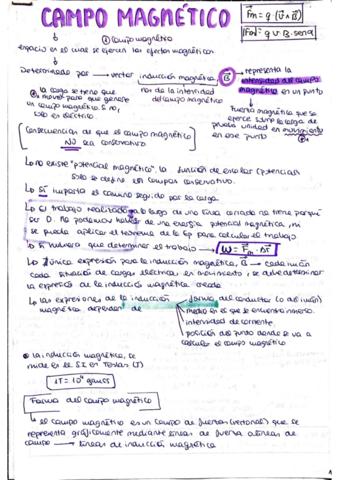 CAMPO MAGNÉTICO
F⃗m = q (v⃗ ∧ B⃗)
|Fm| = q v B senα
① Campo magnético
espacio en el cual se ejercen los efectos magnéticos
Determinado por → vector inducción magnética, B⃗ → representa la
intensidad del campo
magnético en un punto
↳ la carga se tiene que
mover para que genere
un campo magnético. Si no,
solo es eléctrico
de la intensidad
del campo magnético
fuerza magnética que se
ejerce sobre la carga de
prueba unidad en movimiento
en ese punto
Consecuencias de que el campo magnético
NO sea conservativo
↳ no existe "potencial magnético", la función de escalar (potencial)
solo se define en campos conservativos.
↳ SÍ importa el camino seguido por la carga
↳ El trabajo realizado a lo largo de una línea cerrada no tiene porqué
ser 0. No podemos hablar de una energía potencial magnética, ni
se puede aplicar el teorema de la Ep para calcular el trabajo
↳ Si hubiera que determinar el trabajo → W = F⃗m · Δr⃗
↳ única expresión para la inducción magnética, B⃗ → cada imán
cada situación de cargas eléctricas en movimiento, se debe determinar
la expresión de la inducción magnética creada
↳ las expresiones de la inducción
magnética dependen de
forma del conductor (o del imán)
medio en el que se encuentra inmerso
intensidad de corriente
posición del punto donde se va a
calcular el campo magnético
● la inducción magnética, se
mide en el SI en Teslas (T)
1T = 10⁴ gauss
Forma del campo magnético
↳ el campo magnético es un campo de fuerzas (vectorial) que se
representa gráficamente mediante líneas de fuerza o líneas de
campo → líneas de inducción magnética
1